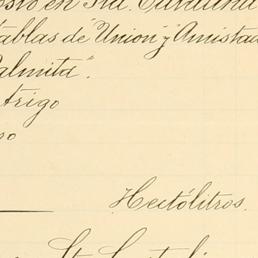 en Sta. Catalina
tablas de "Union" y Amistad
Palmita".
trigo
Hectólitros.